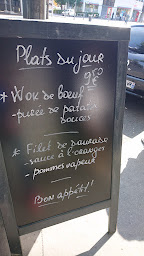 Plats du jour
9€
* Wok de bœuf
- purée de patates
douces
* Filet de daurade
- sauce à l'oranges
- pommes vapeur
Bon appétit!!